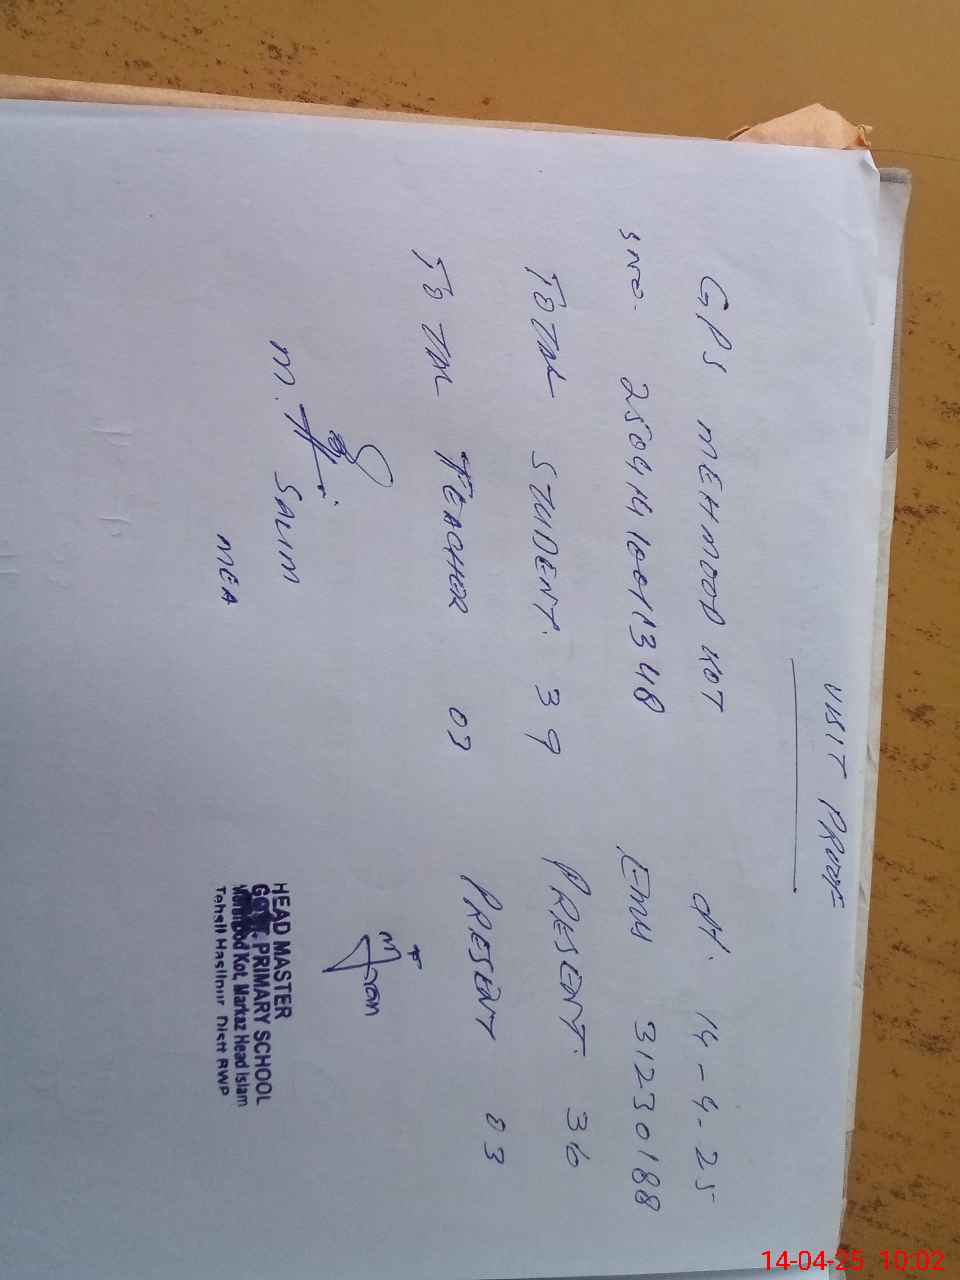 VISIT PROOF
GPS MEHMOOD KOT dt. 14-4-25
SNO. 2504141001348 EMIS 31230188
TOTAL STUDENT. 39 PRESENT. 36
TOTAL TEACHER 03 PRESENT 03
M. SALIM
MEA
HEAD MASTER
GOVT. PRIMARY SCHOOL
Mehmood Kot, Markaz Head Islam
Tehsil Hasilpur Distt BWP
14-04-25 10:02